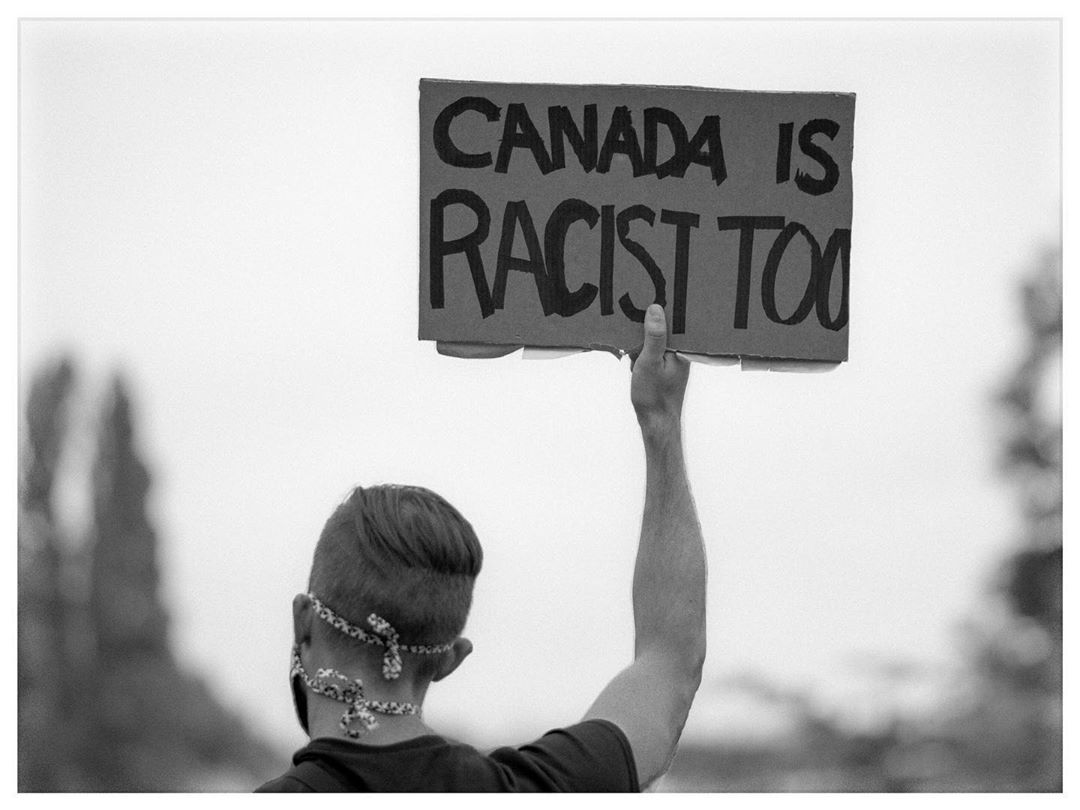 CANADA IS
RACIST TOO